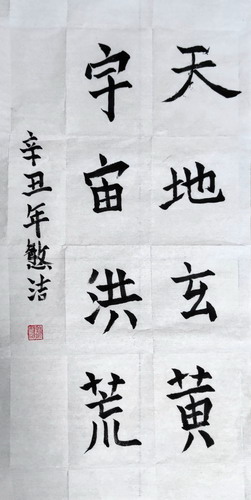 天地玄黄
宇宙洪荒
辛丑年憨洁